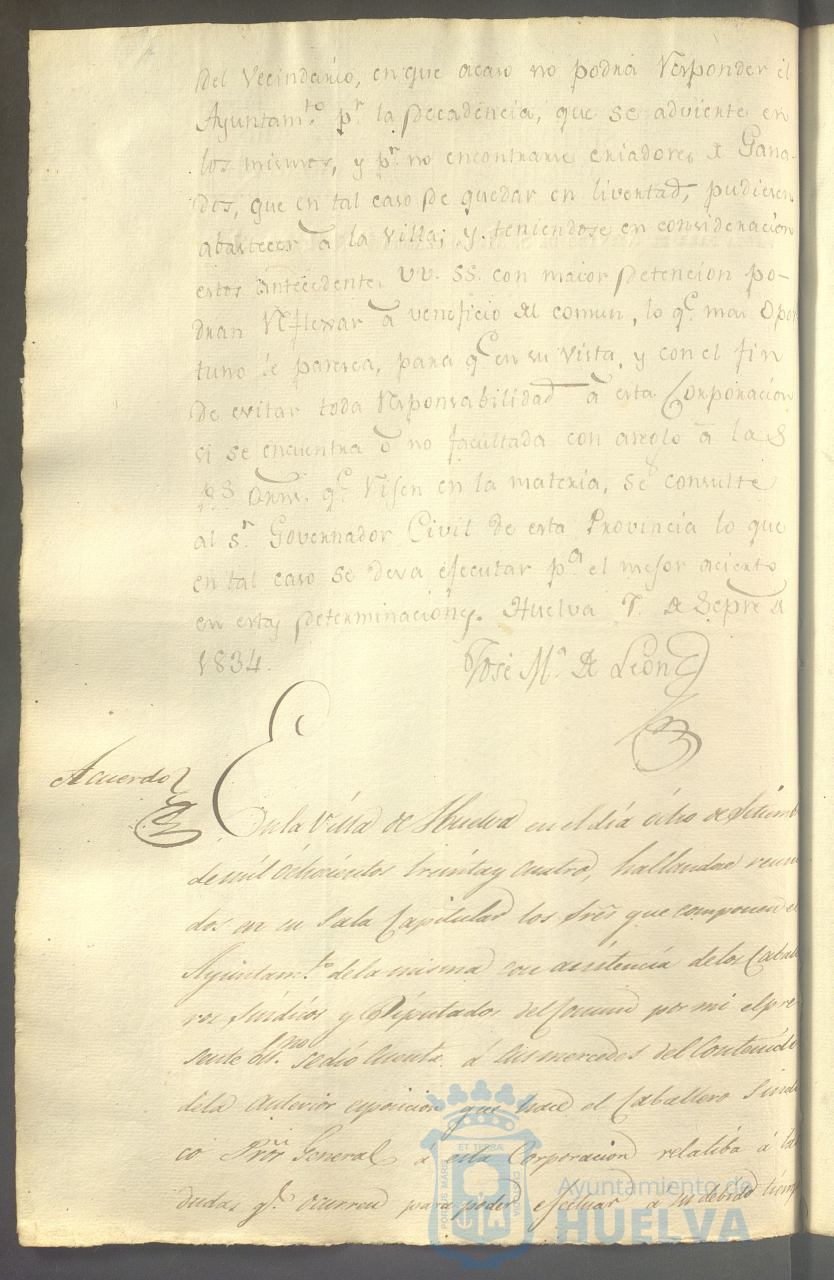 del Vecindario, en que acaso no podrá Responder el
Ayuntam.to p.r la decadencia, que se advierte en
los mismos, y p.r no encontrarse criadores de Gana-
dos, que en tal caso de quedar en livertad, pudiesen
abastecer à la villa; y teniendose en consideracion
estos antecedentes VV. SS. con maior detencion po-
dran Reflexar à veneficio del comun, lo q.e mas opor
tuno le paresca, para q.e en su vista, y con el fin
de evitar toda Responsabilidad à esta Corporacion
si se encuentra ò no facultada con areglo à las
R.s Orns. q.e Rijen en la materia, se consulte
al S.r Governador Civil de esta Provincia lo que
en tal caso se deva ejecutar p.a el mejor acierto
en estas determinaciones. Huelva 7. de Sepre de
1834.
José M.a de Leon
Acuerdo
En la Villa de Huelva en el dia ocho de Setiemb
de mil ochocientos treinta y cuatro, hallandose reuni
dos en su Sala Capitular los Sres que componen el
Ayuntam.to de la misma con asistencia de los Caball
ros Sindicos y Diputados del Comun por mi el pre
sente Ss.no se dió cuenta à sus mercedes del contenido
de la anterior esposicion que hace el Caballero Sindi
co Pror General à esta Corporacion relatiba á las
dudas q.e ocurren para poder efectuar á su debido tiemp
PORTUS MARIS
ET TERRAE
CUSTODIA
Ayuntamiento de
HUELVA